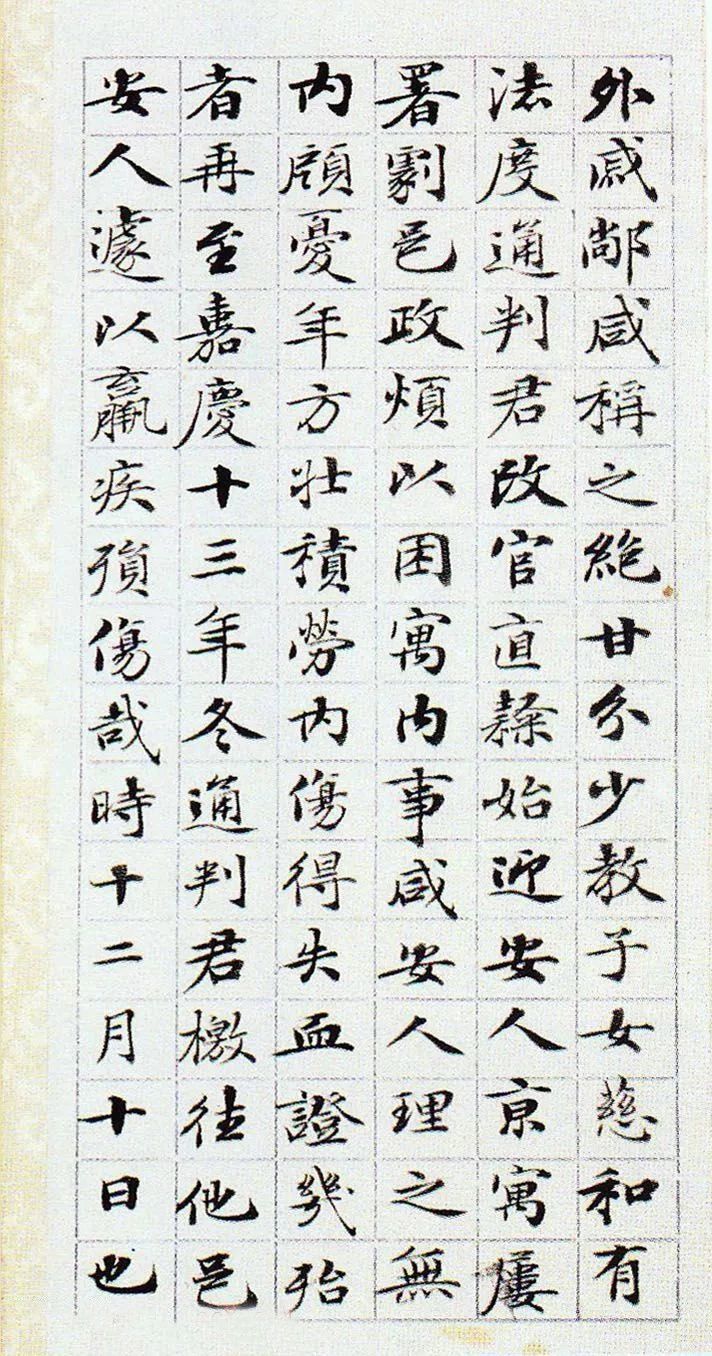 外戚䣊咸稱之絶甘分少教子女慈和有
法度通判君改官直隸始迎安人京寓屢
署劇邑政煩以困寓内事咸安人理之無
内顧憂年方壯積勞内傷得失血證幾殆
者再至嘉慶十三年冬通判君檄往他邑
安人遽以羸疾殞傷哉時十二月十日也